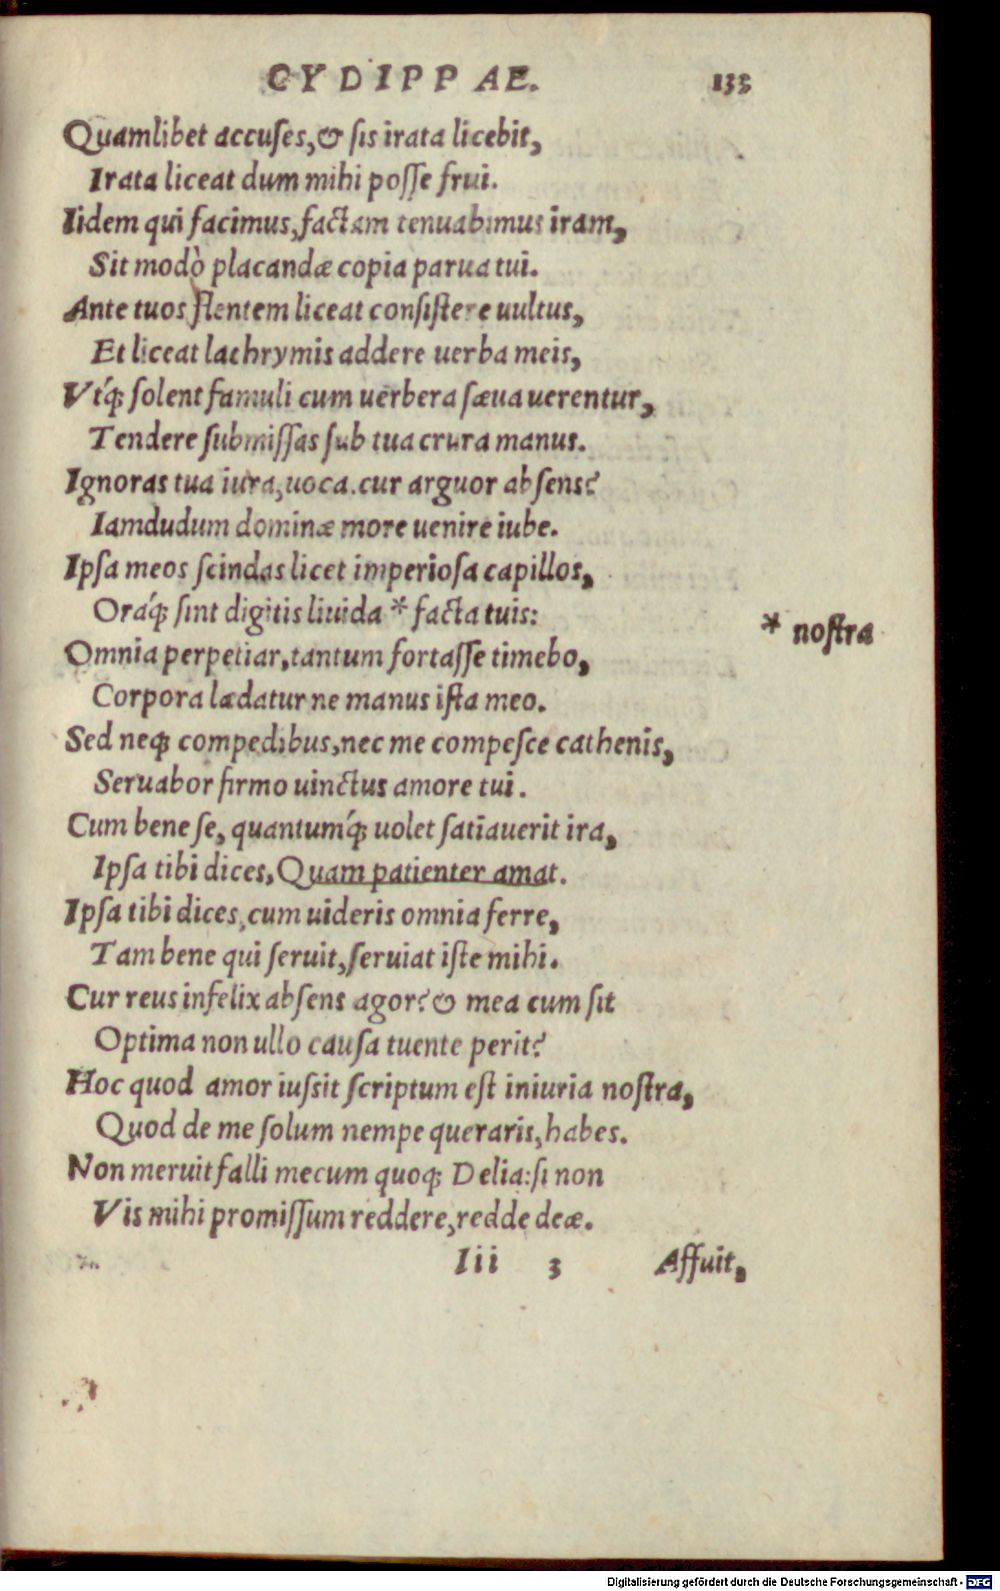 CYDIPPAE. 133
Quamlibet accuses, & sis irata licebit,
Irata liceat dum mihi posse frui.
Iidem qui facimus, factam tenuabimus iram,
Sit modò placandæ copia parua tui.
Ante tuos flentem liceat consistere uultus,
Et liceat lachrymis addere uerba meis,
Vtq́; solent famuli cum uerbera sæua uerentur,
Tendere submissas sub tua crura manus.
Ignoras tua iura, uoca. cur arguor absens?
Iamdudum dominæ more uenire iube.
Ipsa meos scindas licet imperiosa capillos,
Oraq́; sint digitis liuida * facta tuis:
* nostra
Omnia perpetiar, tantum fortasse timebo,
Corpora lædatur ne manus ista meo.
Sed neq; compedibus, nec me compesce cathenis,
Seruabor firmo uinctus amore tui.
Cum bene se, quantumq́; uolet satiauerit ira,
Ipsa tibi dices, Quam patienter amat.
Ipsa tibi dices, cum uideris omnia ferre,
Tam bene qui seruit, seruiat iste mihi.
Cur reus infelix absens agor? & mea cum sit
Optima non ullo causa tuente perit?
Hoc quod amor iussit scriptum est iniuria nostra,
Quod de me solum nempe queraris, habes.
Non meruit falli mecum quoq; Delia: si non
Vis mihi promissum reddere, redde deæ.
Iii 3 Affuit,
Digitalisierung gefördert durch die Deutsche Forschungsgemeinschaft - DFG